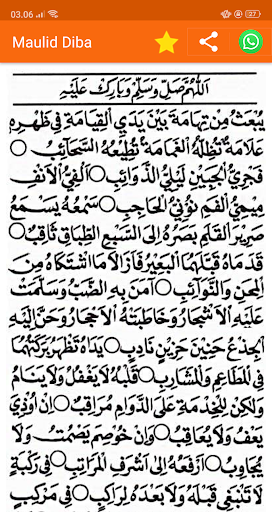 03.06
27
Maulid Diba
اَللّٰهُمَّ صَلِّ وَسَلِّمْ وَبَارِكْ عَلَيْهِ
يُبْعَثُ مِنْ تِهَامَةَ بَيْنَ يَدَيِ الْقِيَامَةِ فِي ظَهْرِهِ
عَلَامَةٌ تُظِلُّهُ الْغَمَامَةُ ۝ تُطِيعُهُ السَّحَائِبُ ۝
فَجْرِيُّ الْجَبِيْنِ لَيْلِيُّ الذَّوَائِبِ ۝ أَلِفِيُّ الْأَنْفِ
مِيْمِيُّ الْفَمِ نُوْنِيُّ الْحَاجِبِ ۝ سَمْعُهُ يَسْمَعُ
صَرِيْرَ الْقَلَمِ بَصَرُهُ إِلَى السَّبْعِ الطِّبَاقِ ثَاقِبٌ ۝
قَدَمَاهُ قَبَّلَهُمَا الْبَعِيْرُ فَأَزَالَا مَا اشْتَكَاهُ مِنَ
الْمِحَنِ وَالنَّوَائِبِ ۝ آمَنَ بِهِ الضَّبُّ وَسَلَّمَتْ
عَلَيْهِ الْأَشْجَارُ وَخَاطَبَتْهُ الْأَحْجَارُ وَحَنَّ إِلَيْهِ
الْجِذْعُ حَنِيْنَ حَزِيْنٍ نَادِبٍ ۝ يَدَاهُ تَظْهَرُ بَرَكَتُهُمَا
فِي الْمَطَاعِمِ وَالْمَشَارِبِ ۝ قَلْبُهُ لَا يَغْفُلُ وَلَا يَنَامُ
وَلٰكِنْ لِلْخِدْمَةِ عَلَى الدَّوَامِ مُرَاقِبٌ ۝ إِنْ أُوْذِيَ
يَعْفُ وَلَا يُعَاقِبُ ۝ وَإِنْ خُوْصِمَ يَصْمُتُ وَلَا
يُجَاوِبُ ۝ أَرْفَعُهُ إِلَى أَشْرَفِ الْمَرَاتِبِ ۝ فِي رَكْبَةٍ
لَا تَنْبَغِي قَبْلَهُ وَلَا بَعْدَهُ لِرَاكِبٍ ۝ فِي مَوْكِبٍ